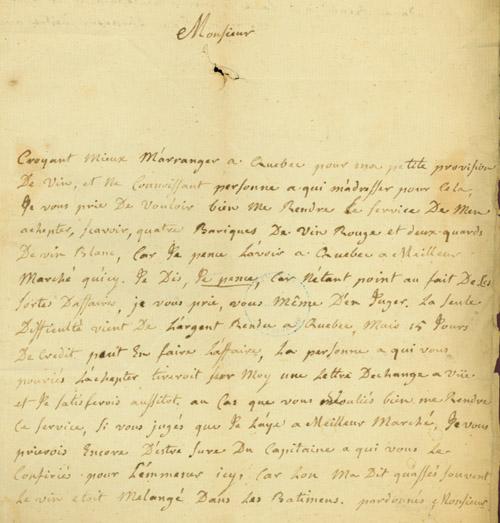 Monsieur
Croyant Mieux M'arranger a Quebec pour ma petite provision
De Vin, et Ne Connoissant personne a qui m'adresser pour Cela,
Je vous prie De vouloir bien Me Rendre Le service De M'en
achepter, sçavoir, quatre Bariques De Vin Rouge et deux quards
De vin Blanc, Car Je pence L'avoir a Quebec a Meilleur
Marché qu'icy. Je Dis, Je pence, Car N'étant point au fait De Les
sortes D'affaire, je vous prie, vous Même D'en Juger. La seule
Difficulté vient De L'argent Rendu a Quebec, Mais 15 Jours
De Credit peut En faire L'affaire, La personne a qui vous
pouriés L'achepter tireroit sur Moy une Lettre D'echange a Vüe
et Je satisferois aussitot, au Cas que vous vouliés bien me Rendre
Ce service, si vous jugés que Je L'aye a Meilleur Marché, Je vous
prierois Encore D'Estre sure Du Capitaine a qui vous Le
Confiriés pour L'emmener icy, Car L'on M'a Dit qu'assés souvent
Le vin etoit Melangé Dans Les Batimens. pardonnés Monsieur